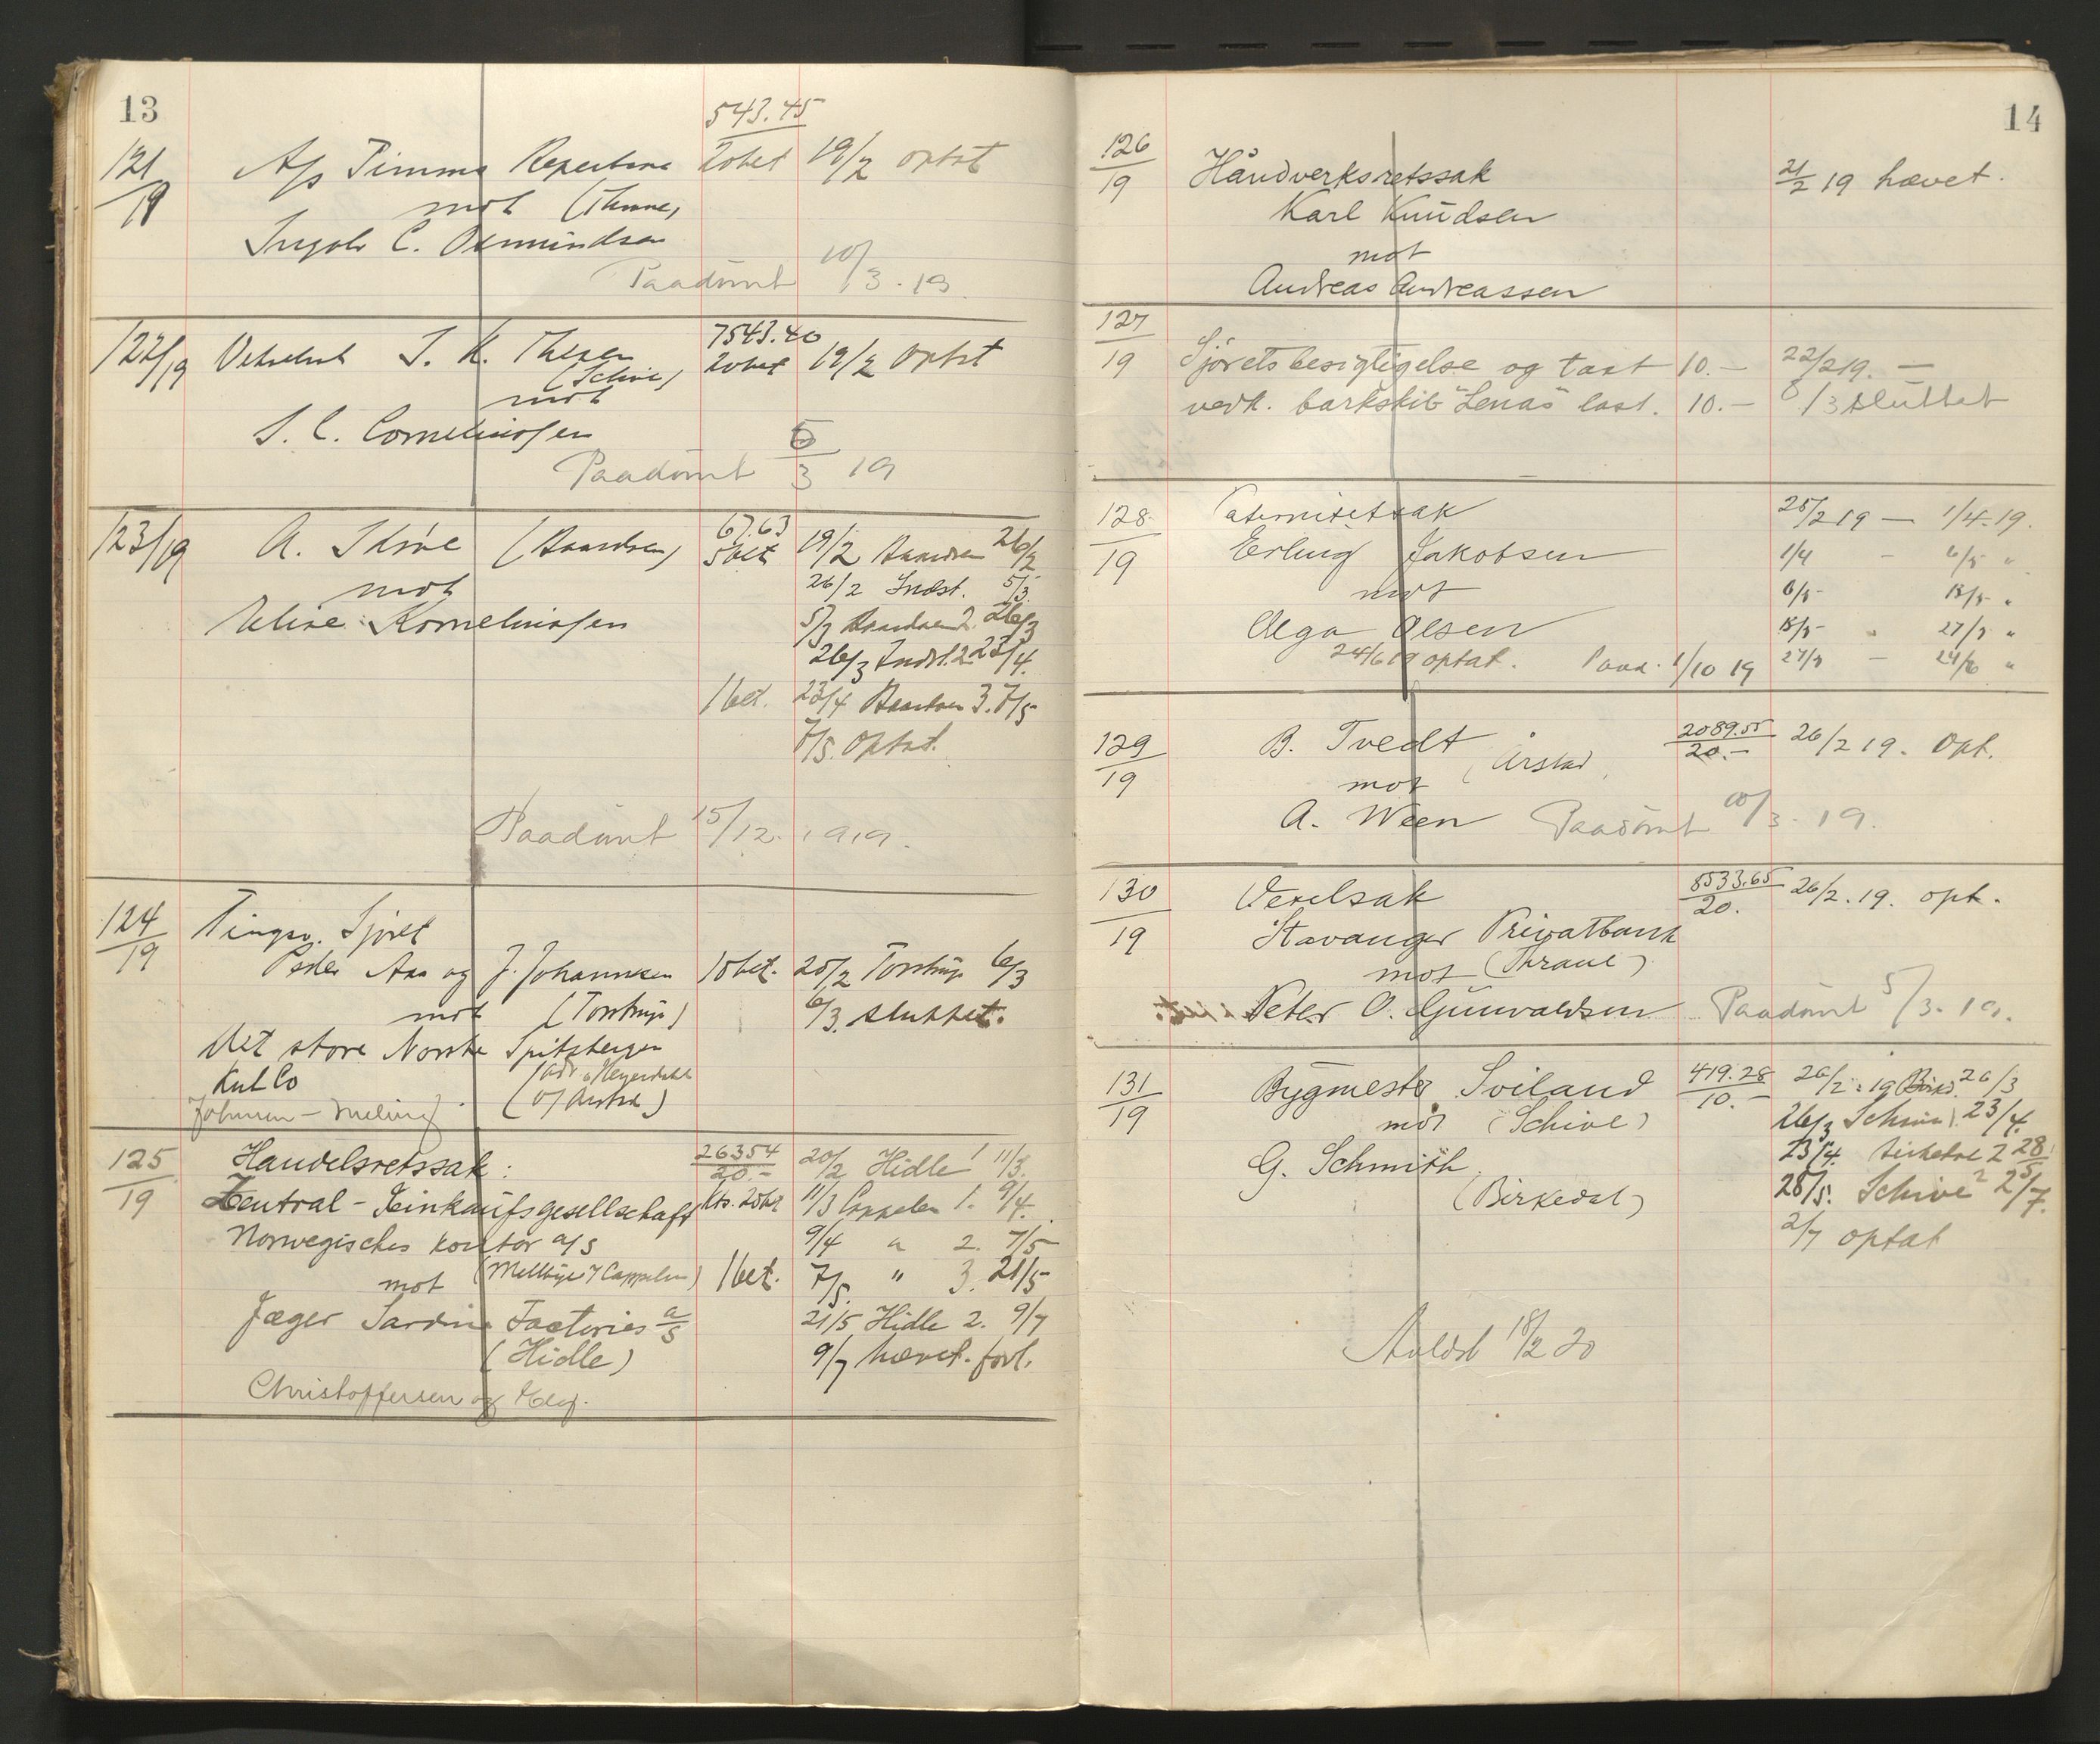 13
543.45
121/19 A/s Timms Reperbane 20bet 19/2 optat
mot (Thrane)
Ingolv C. Osmundsen
Paadömt 10/3. 19.
7543.40
122/19 Vekselsak I. K. Thesen 20bet 19/2 Optat
(Schive)
mot
S. C. Corneliussen
Paadömt 5/3 19
67.63
123/19 A. Sköie (Baardsen) 5 bet 19/2 Baardsen 26/2
mot 26/2 Indst. 5/3.
Korneliussen 5/3 Baardsen 2. 26/3
26/3 Indst. 2 23/4.
1 bet. 23/4 Baardsen 3. 7/5
7/5. Optat.
Paadömt 15/12. 1919.
124/19 Tingsv. Sjöret
Peder Aas og J. Johannesen 10 bet. 25/2 Torstrup 6/3
mot (Torstrup) 6/3. sluttet.
Det store Norske Spitsbergen
Kul Co (adv. Heyerdahl
Johnsen – Meling v/ )
125/19 Handelsretssak: 26354 20/2 Hidle 1 11/3.
20.–
Zentral - Einkaufsgesellschaft 20bet 11/3 Cappelen 1. 9/4.
Norwegisches Kontor a/s 9/4 " 2. 7/5
mot (Mellbye & Cappelen) 1 bet. 7/5. " 3. 21/5
Jæger Sardine Factories a/s 21/5 Hidle 2. 9/7
(Hidle) 9/7 hævet. forl.
Christoffersen og
14
126/19 Håndverksretssak 21/2 19 hævet.
Karl Knudsen
mot
Andreas Andreassen
127/19 Sjöretsbesigtigelse og taxt 10.– 22/2 19. –
vedk. barkskib "Lenas" last. 10.– 8/3 sluttet
128/19 Paternitetssak 25/2 19 – 1/4.19.
Erling Jakobsen 1/4 – 6/5 "
mot 6/5 – 15/5 "
Olga Olsen 15/5 – 27/5 "
24/6 19 optat. Paad. 1/10 19 27/5 – 24/6 "
129/19 B. Tvedt 2089.55 26/2 19. Opt.
(Årstad) 20.–
mot
A. Ween Paadömt 10/3. 19.
130/19 Vexelsak 8533.65 26/2. 19. opt.
20.
Stavanger Privatbank
mot (Thrane)
Peter O. Gunvaldsen Paadömt 5/3. 19.
131/19 Bygmester Sviland 419.28 26/2. 19 Birk. 26/3
10.–
mot (Schive) 26/3 Schive 1. 23/4.
G. Schmith. 23/4. Birkedal 2 28/5
(Birkedal) 28/5. Schive 2 2/7.
2/7 optat
Avldst 18/2 20